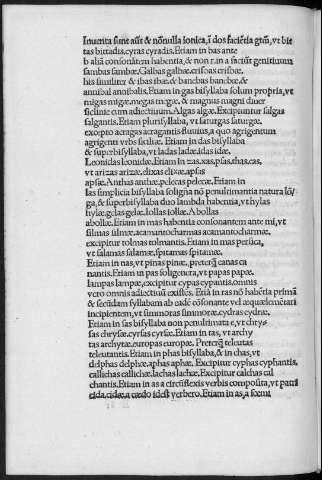 Inuenta sunt aũt & nõnulla Ionica, ĩ dos faciẽtia gtm̃, vt bit
tas bittadis. cyras cyradis. Etiam in bas ante
b aliã consonãtem habentia, & non r. in a faciũt genitiuum
sambus sambæ. Galbas galbæ. crisbas crisbæ.
his similiter & ibas ibæ. & bancbas bancbæ. &
annibal annibalis. Etiam in gas bisyllaba solum propria, vt
migas migæ. megas megæ. & magnus magni diuer
sicline cum adiectiuum. Algas algæ. Excipiuntur falgas
falgantis. Etiam plurisyllaba, vt saturgas saturgæ.
excepto acragas acragantis fluuius, a quo agrigentum
agrigenti vrbs siciliæ. Etiam in das bisyllaba
& superbisyllaba, vt ladas ladæ. idas idæ.
Leonidas leonidæ. Etiam in zas. xas. psas. thas. cas,
vt arizas arizæ. dixas dixæ. apsas
apsæ. Anthas anthæ. pelecas pelecæ. Etiam in
las simplicia bisyllaba soligña nõ penultimantia natura lõ
ga, & superbisyllaba duo lambda habentia, vt hylas
hylæ. gelas gelæ. Iollas iollæ. Abollas
abollæ. Etiam in mas habentia consonantem ante mi, vt
silmas silmæ. acamantocharmas acamantocharmæ.
excipitur tolmas tolmantis. Etiam in mas persica,
vt salamas salamæ. spitamas spitamæ.
Etiam in nas, vt pinas pinæ. preterq̃ canas ca
nantis. Etiam in pas soligenera, vt papas papæ.
lampas lampæ, excipitur cypas cypantis. omnis
vero omnis adiectiuũ existẽs. Etiã in ras nõ habẽtia primã
& secũdam syllabam ab eadẽ cõsonante vel æquælemẽtari
incipientem, vt simmoras simmoræ. cydras cydræ.
Etiam in sas bisyllaba non penultimata e, vt chry
sas chrysæ. cyrsas cyrsæ. Etiam in tas, vt archy
tas archytæ. europas europæ. Preterq̃ teleutas
teleutantis. Etiam in phas bisyllaba, & in chas, vt
delphas delphæ. aphas aphæ. Excipitur cyphas cyphantis.
callichas callichæ. lachas lachæ. Excipitur calchas cal
chantis. Etiam in as a circũflexis verbis composita, vt patri
cida. cidæ. a cædo idest verbero. Etiam in as, a fœmi